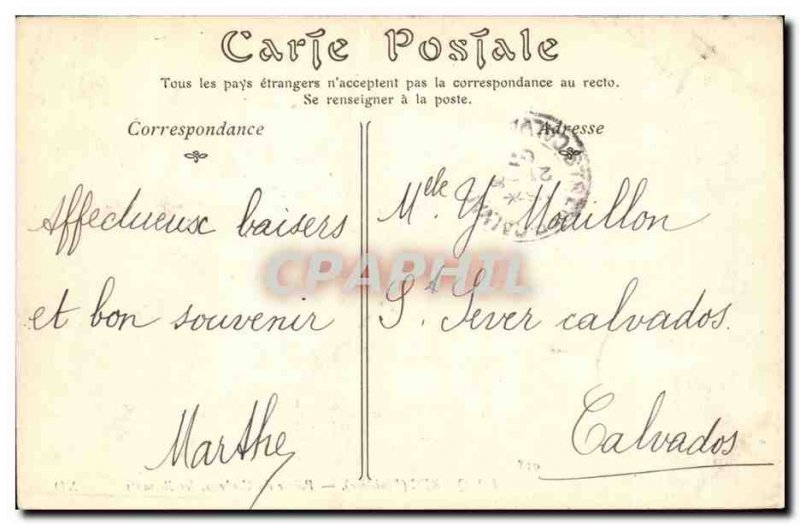 Carte Postale
Tous les pays étrangers n'acceptent pas la correspondance au recto.
Se renseigner à la poste.
Correspondance
Adresse
Affectueux baisers
et bon souvenir
Marthe
Melle Y Mouillon
St. Sever calvados.
Calvados
CPAPHIL